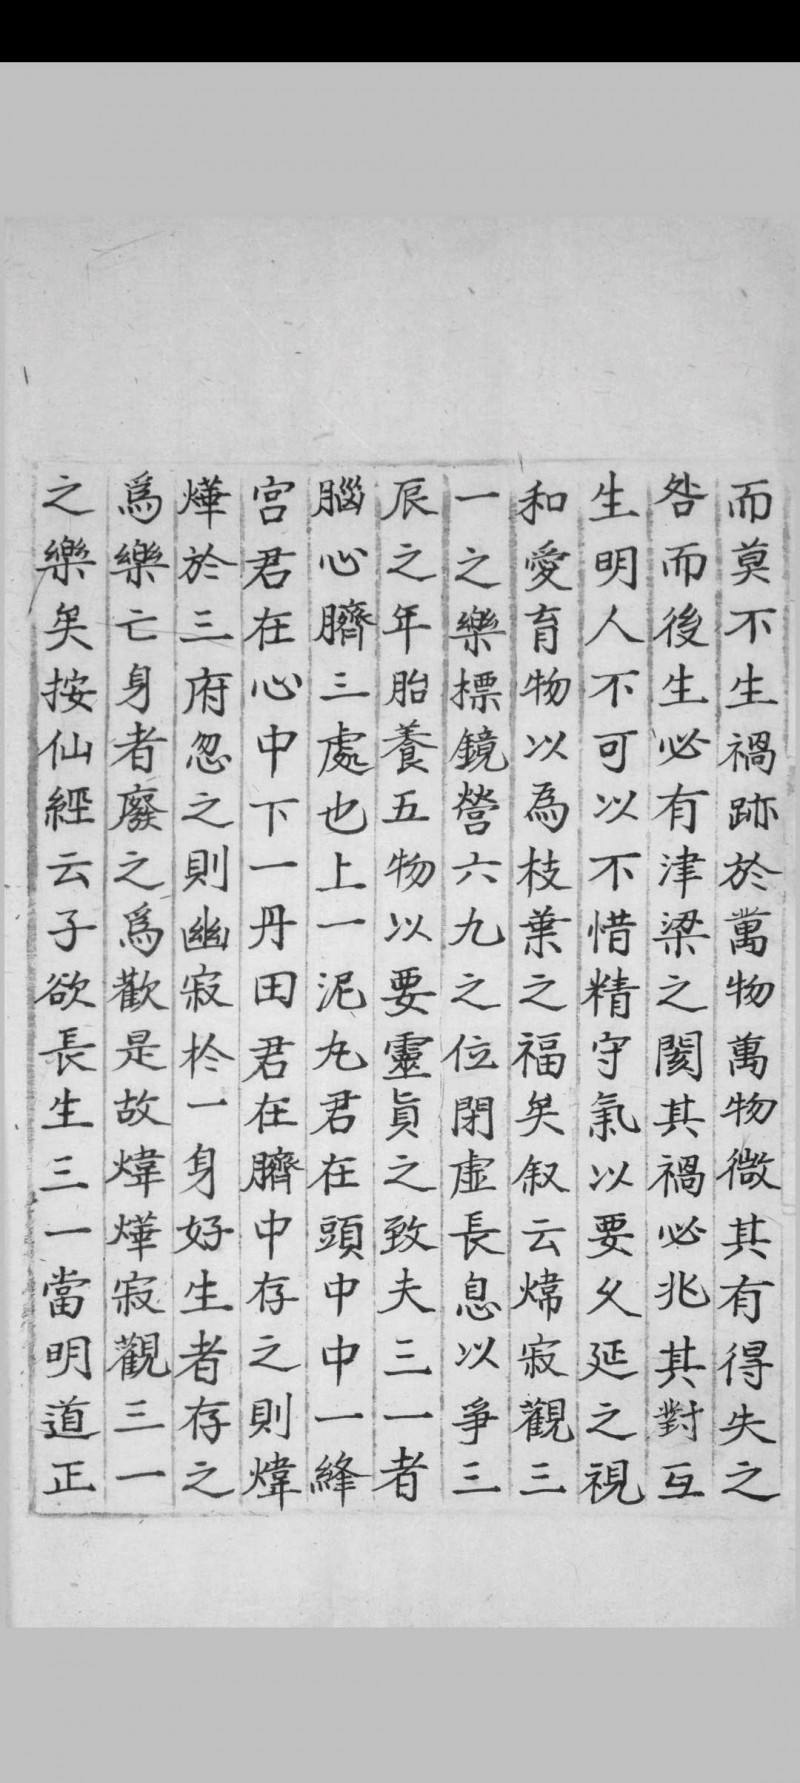 而莫不生禍跡於萬物萬物微其有得失之
咎而後生必有津梁之闋其禍必兆其對互
生明人不可以不惜精守氣以要久延之視
和愛育物以為枝葉之福矣叙云煒寂觀三
一之樂標鏡營六九之位閉虛長息以爭三
辰之年胎養五物以要靈眞之致夫三一者
腦心臍三處也上一泥丸君在頭中中一絳
宮君在心中下一丹田君在臍中存之則煒
燁於三府忽之則幽寂扵一身好生者存之
爲樂亡身者廢之爲歡是故煒燁寂觀三一
之樂矣按仙經云子欲長生三一當明道正